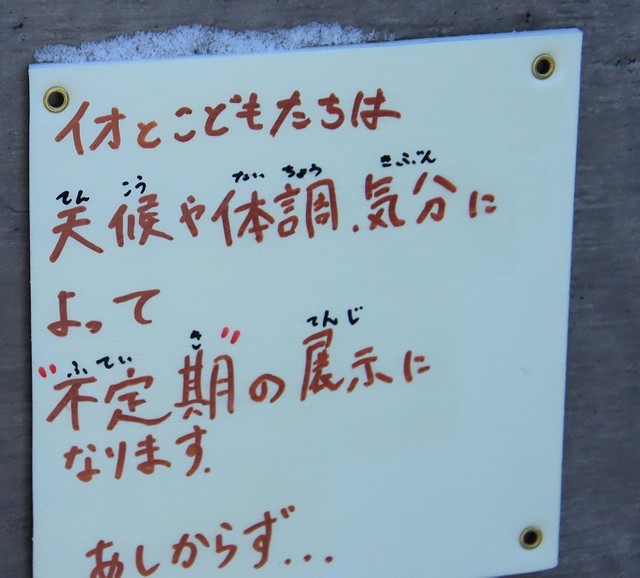 イオとこどもたちは
てん こう たい ちょう きぶん
天候や体調、気分に
よって
ふてい き てんじ
"不定期"の展示に
なります。
あしからず...